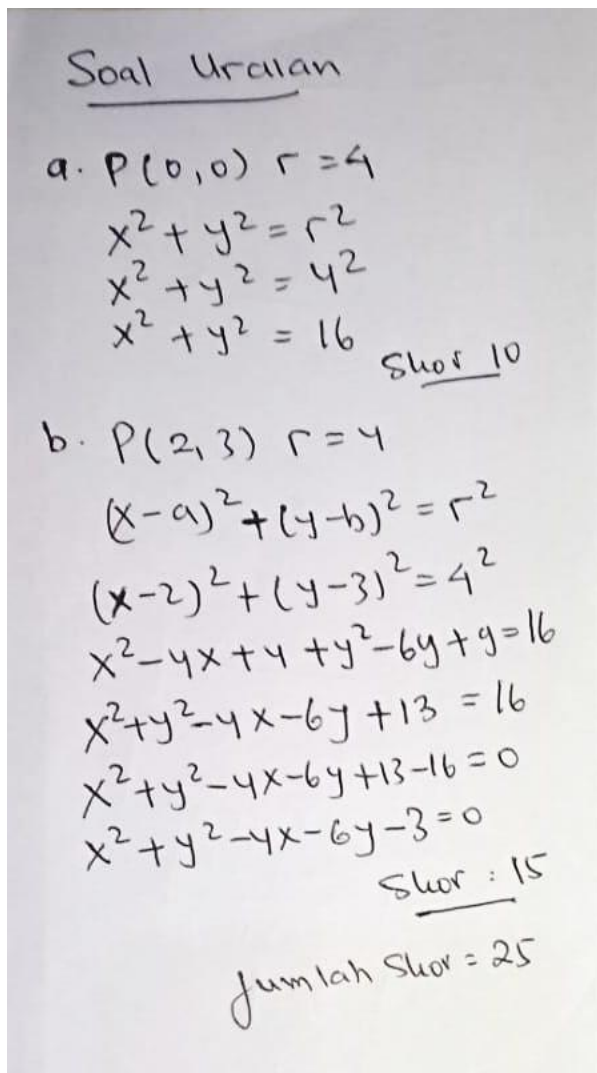 Soal Uraian
a. P(0,0) r = 4
x² + y² = r²
x² + y² = 4²
x² + y² = 16
Skor 10
b. P(2,3) r = 4
(x-a)² + (y-b)² = r²
(x-2)² + (y-3)² = 4²
x²-4x+4 +y²-6y+9=16
x²+y²-4x-6y+13 = 16
x²+y²-4x-6y+13-16=0
x²+y²-4x-6y-3=0
Skor : 15
Jumlah Skor = 25